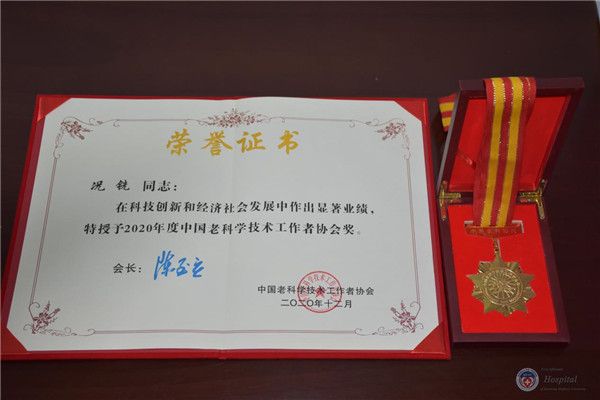 荣誉证书
况铣 同志:
在科技创新和经济社会发展中作出显著业绩,
特授予2020年度中国老科学技术工作者协会奖。
会长:
中国老科学技术工作者协会
二〇二〇年十二月
Hospital